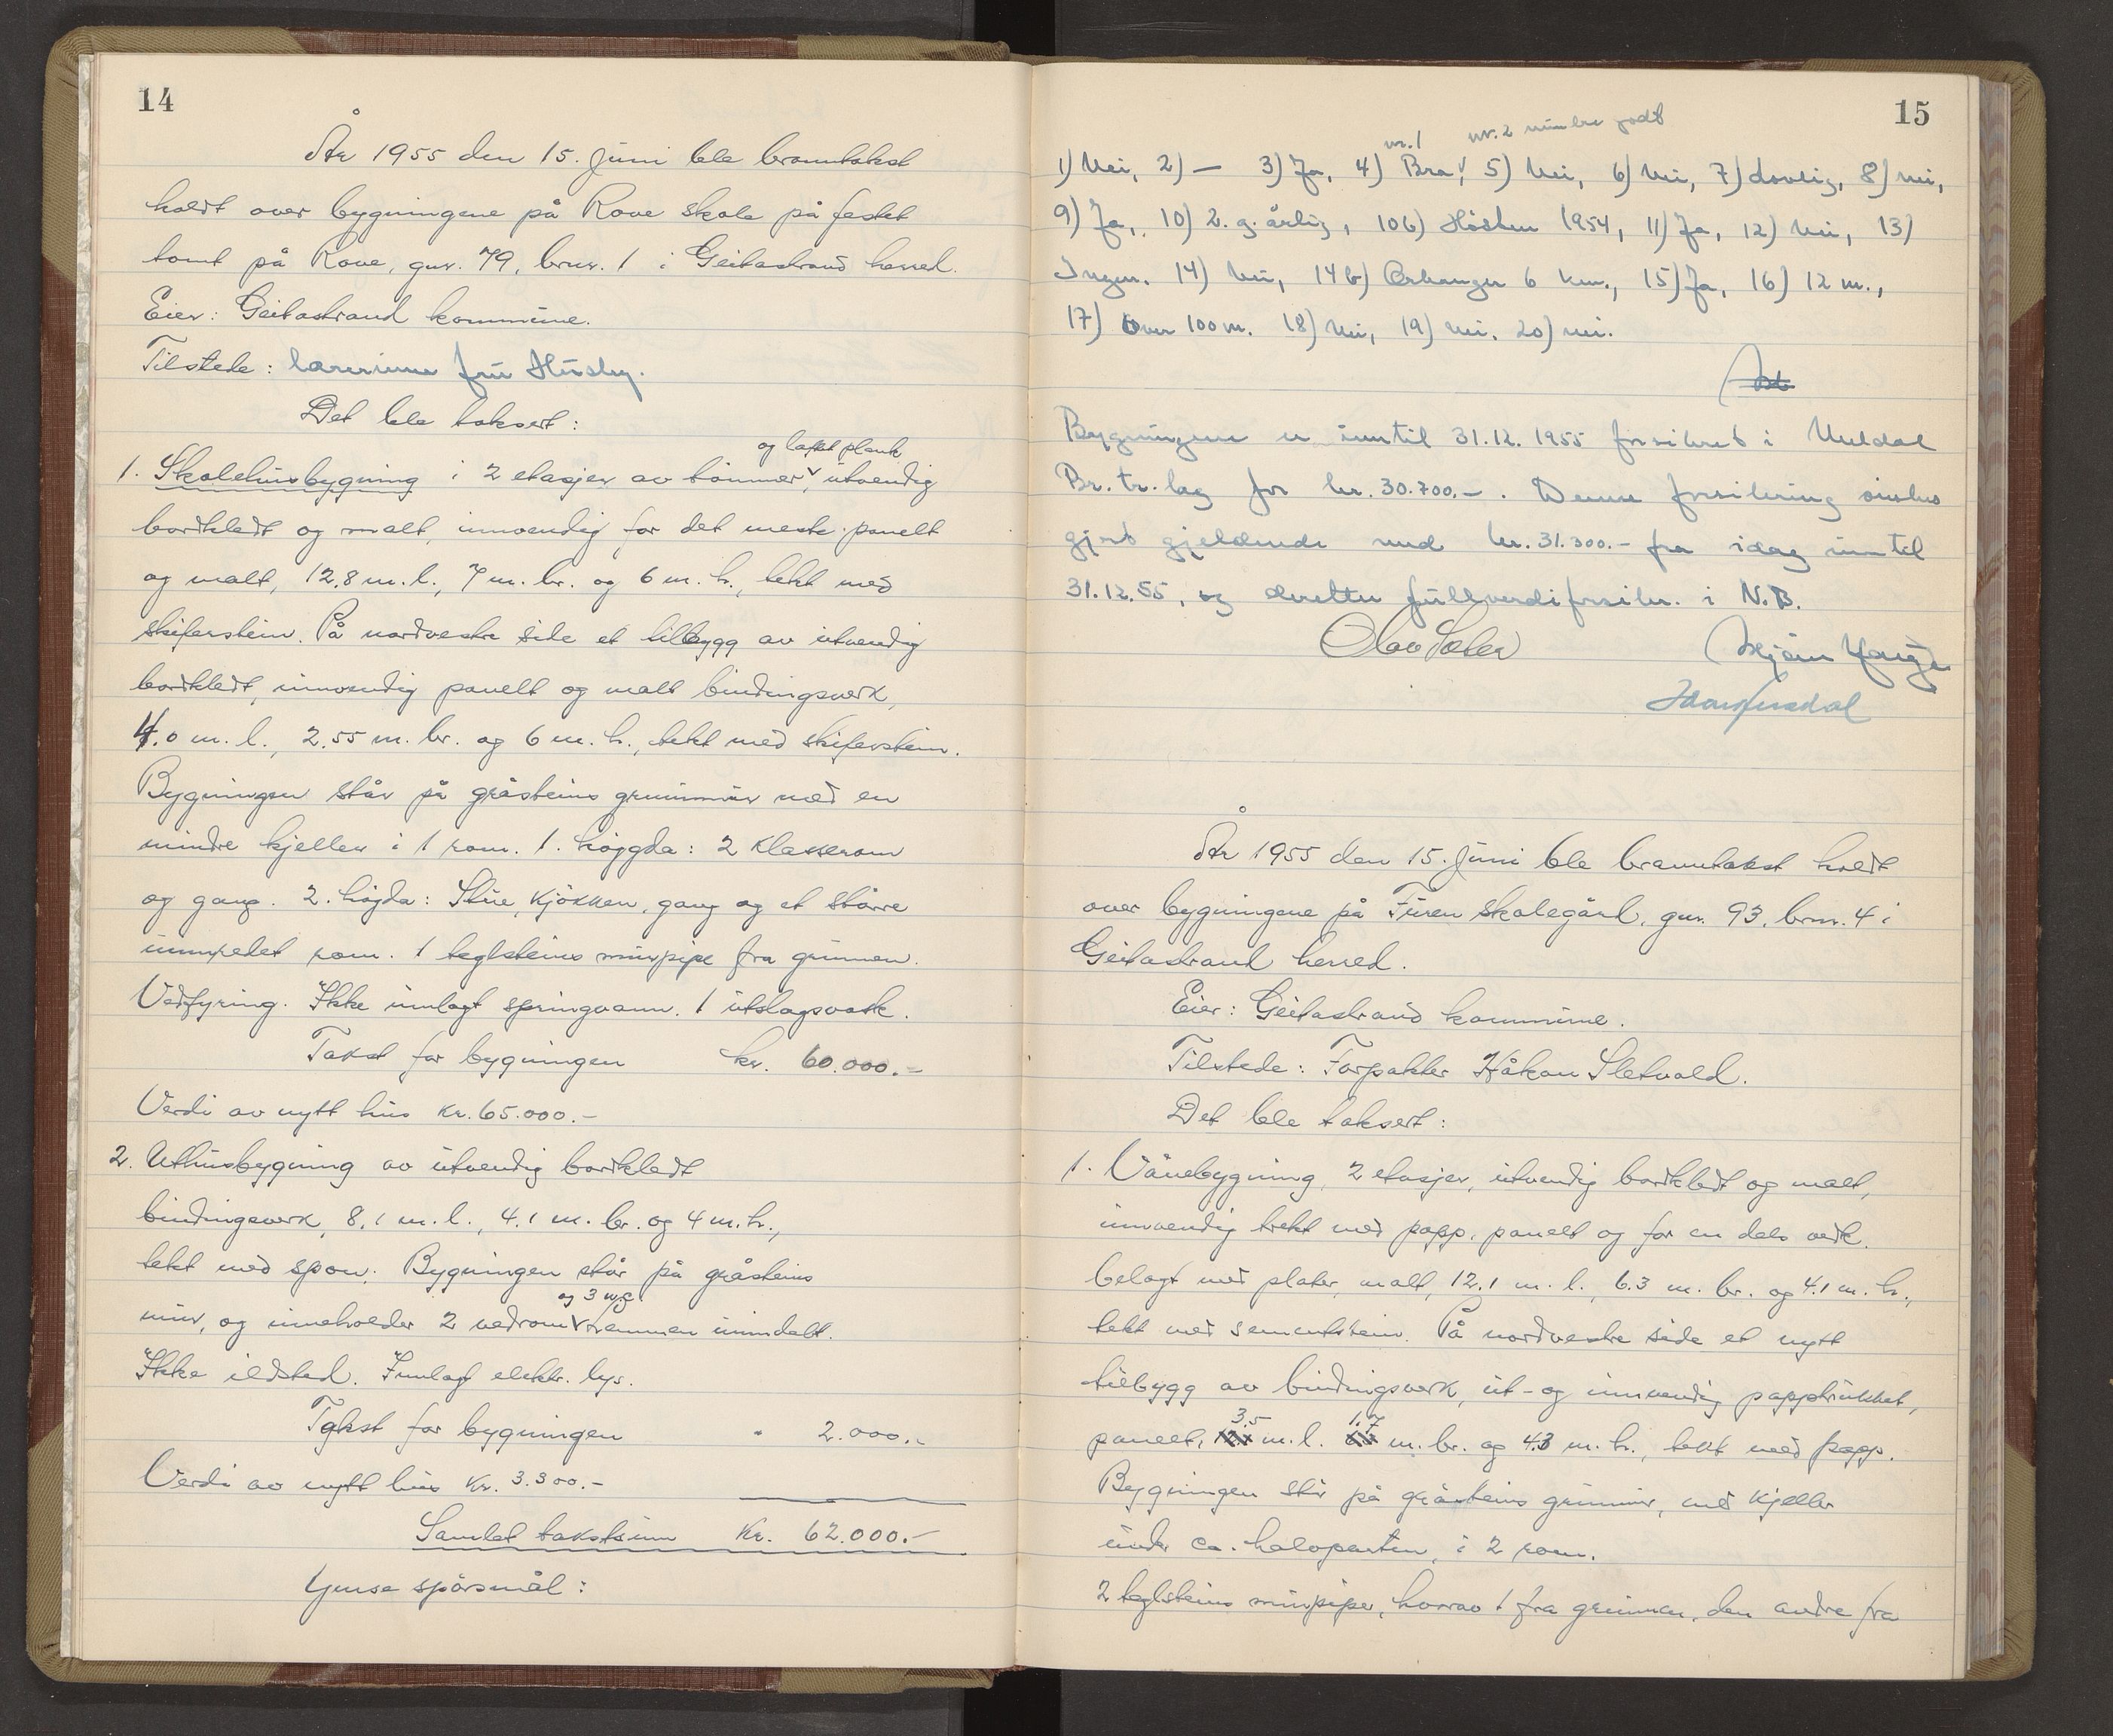 14
År 1955 den 15. juni ble branntakst
holdt over bygningene på Rove skole på festet
tomt på Rove, gnr. 79, brnr. 1 i Geitastrand herred.
Eier: Geitastrand kommune.
Tilstede: lærerinne fru Husby.
Det ble taksert:
og laftet plank
1. Skolehusbygning i 2 etasjer av tømmer, utvendig
bordkledt og malt, innvendig for det meste panelt
og malt, 12.8 m. l., 7 m. br. og 6 m. h., tekt med
skiferstein. På nordvestre side et tilbygg av utvendig
bordkledt, innvendig panelt og malt bindingsverk,
4.0 m. l., 2.55 m. br. og 6 m. h., tekt med skiferstein.
Bygningen står på gråsteins grunnmur med en
mindre kjeller i 1 rom. 1. høgda: 2 klasserom
og gang. 2. høgda: Stue, kjøkken, gang og et større
innredet rom. 1 teglsteins murpipe fra grunnen.
Vedfyring. Ikke innlagt springvann. 1 utslagsvask.
Takst for bygningen kr. 60.000.-
Verdi av nytt hus kr. 65.000.-
2. Uthusbygning av utvendig bordkledt
bindingsverk, 8.1 m. l., 4.1 m. br. og 4 m. h.,
tekt med spon. Bygningen står på gråsteins
og 3 w.c.
mur, og inneholder 2 vedrom forresten inndelt.
Ikke ildsted. Innlagt elektr. lys.
Takst for bygningen " 2.000.-
Verdi av nytt hus kr. 3.300.-
Samlet takstsum Kr. 62.000.-
Ymse spørsmål:
15
nr. 1 nr. 2 mindre godt
1) Nei, 2) — 3) Ja, 4) Bra, 5) Nei, 6) Nei, 7) dovlig, 8) nei,
9) Ja, 10) 2. g. årlig, 10b) Høsten 1954, 11) Ja, 12) Nei, 13)
Ingen. 14) Nei, 14b) Orkanger 6 km., 15) Ja, 16) 12 m.,
17) Over 100 m. 18) Nei, 19) nei. 20) nei.
Bygningene er inntil 31.12. 1955 forsikret i Meldal
Br. tr. lag for kr. 30.700.-. Denne forsikring ønskes
gjort gjeldende med kr. 31.300.- fra idag inntil
31.12.55, og deretter fullverdiforsikr. i N.B.
Olav Sæter
År 1955 den 15. juni ble branntakst holdt
over bygningene på Furen skolegård, gnr. 93, brnr. 4 i
Geitastrand herred.
Eier: Geitastrand kommune.
Tilstede: Forpakter Håkon Sletvold.
Det ble taksert:
1. Vånebygning, 2 etasjer, utvendig bordkledt og malt,
innvendig trekt med papp, panelt og for en dels vedk.
belagt med plater, malt, 12.1 m. l., 6.3 m. br. og 4.1 m. h.,
tekt med sementstein. På nordvestre side et nytt
tilbygg av bindingsverk, ut- og innvendig papptrukket,
3.5 1.7
panelt, m. l. m. br. og 4.3 m. h., tekt med papp.
Bygningen står på gråsteins grunnmur, med kjeller
under ca. halvparten, i 2 rom.
2 teglsteins murpiper, hvorav 1 fra grunnen, den andre fra